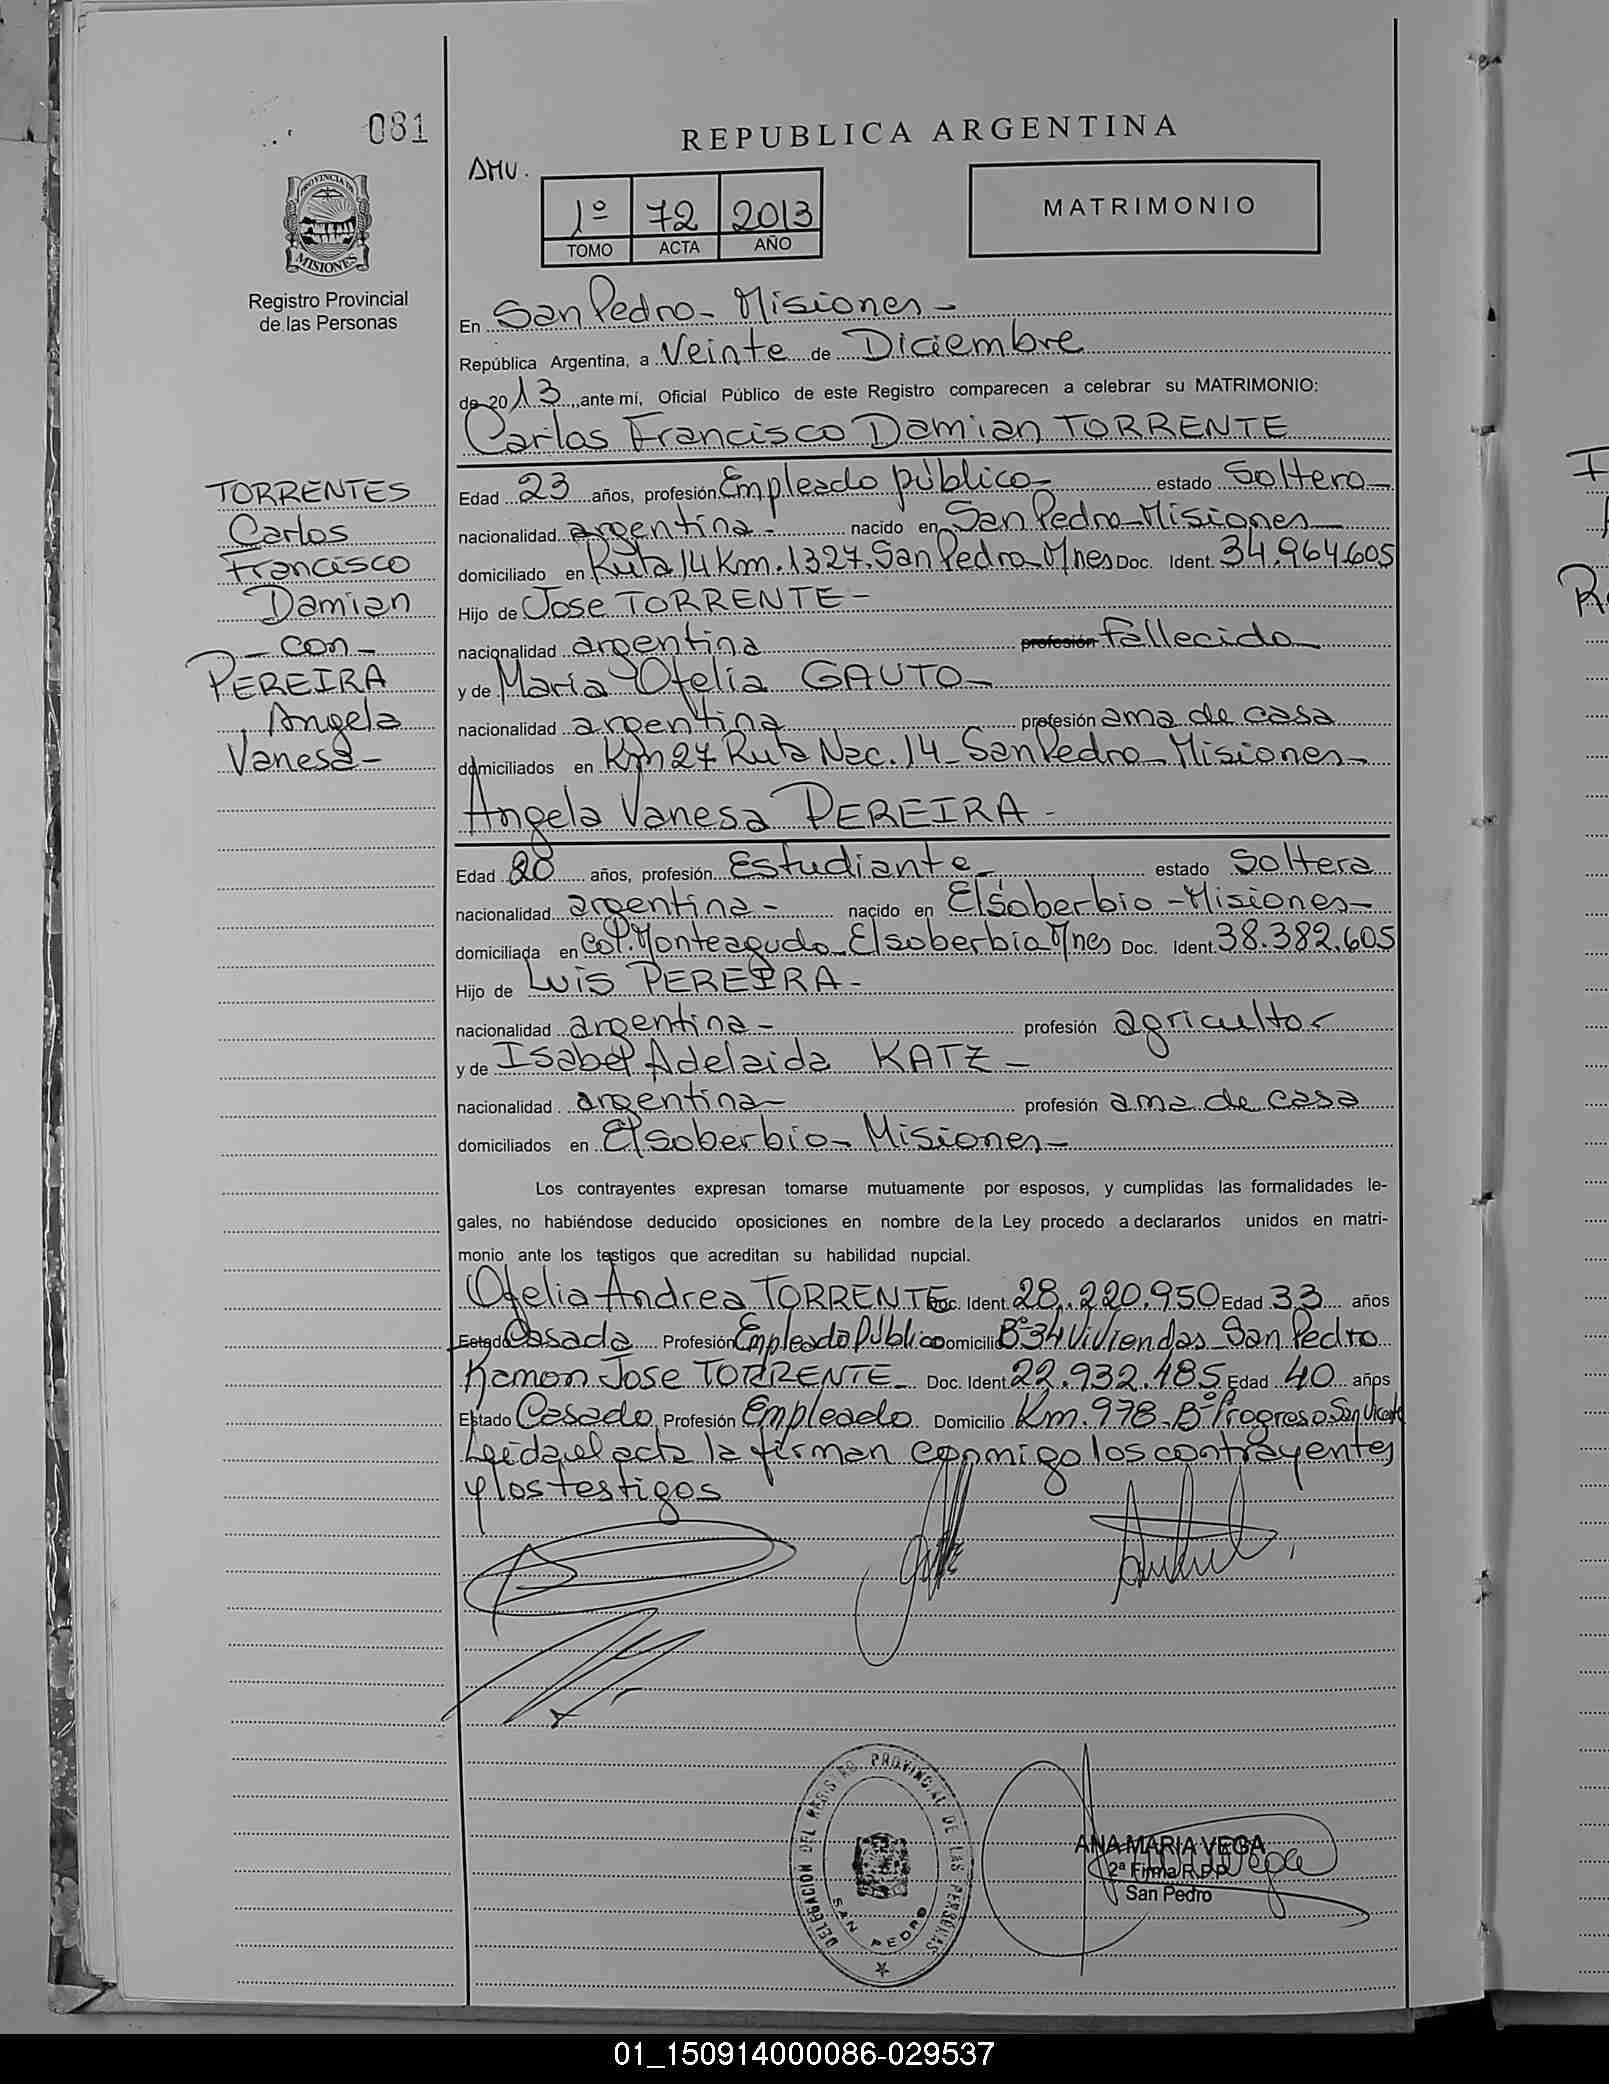 081
REPUBLICA ARGENTINA
AMV.
1º 72 2013
TOMO ACTA AÑO
MATRIMONIO
PROVINCIA DE
MISIONES
Registro Provincial
de las Personas
En San Pedro - Misiones -
República Argentina, a Veinte de Diciembre
de 2013, ante mí, Oficial Público de este Registro comparecen a celebrar su MATRIMONIO:
Carlos Francisco Damian TORRENTE
TORRENTES
Carlos
Francisco
Damian
- con -
PEREIRA
Angela
Vanesa -
Edad 23 años, profesión Empleado público - estado Soltero -
nacionalidad argentina - nacido en San Pedro - Misiones
domiciliado en Ruta 14 Km. 1327. San Pedro - Mnes Doc. Ident. 34.964.605
Hijo de Jose TORRENTE -
nacionalidad argentina profesión fallecido
y de Maria Ofelia GAUTO -
nacionalidad argentina profesión ama de casa
domiciliados en Km 27 Ruta Nac. 14 - San Pedro - Misiones -
Angela Vanesa PEREIRA -
Edad 20 años, profesión Estudiante - estado Soltera
nacionalidad argentina - nacido en El soberbio - Misiones -
domiciliada en Col. Monteagudo - El soberbio Mnes Doc. Ident. 38.382.605
Hijo de Luis PEREIRA -
nacionalidad argentina - profesión agricultor
y de Isabel Adelaida KATZ -
nacionalidad argentina - profesión ama de casa
domiciliados en El soberbio - Misiones -
Los contrayentes expresan tomarse mutuamente por esposos, y cumplidas las formalidades le-
gales, no habiéndose deducido oposiciones en nombre de la Ley procedo a declararlos unidos en matri-
monio ante los testigos que acreditan su habilidad nupcial.
Ofelia Andrea TORRENTE Doc. Ident. 28.220.950 Edad 33 años
Estado Casada Profesión Empleado público Domicilio Bº 34 Viviendas - San Pedro
Ramon Jose TORRENTE - Doc. Ident. 22.932.485 Edad 40 años
Estado Casado Profesión Empleado Domicilio Km. 978 - Bº Progreso San Vicente
Leida el acta la firman conmigo los contrayentes
y los testigos
DELEGACION DEL REGISTRO PROVINCIAL DE LAS PERSONAS
SAN PEDRO
ANA MARIA VEGA
2ª Firma R.P.P.
San Pedro
01_150914000086-029537